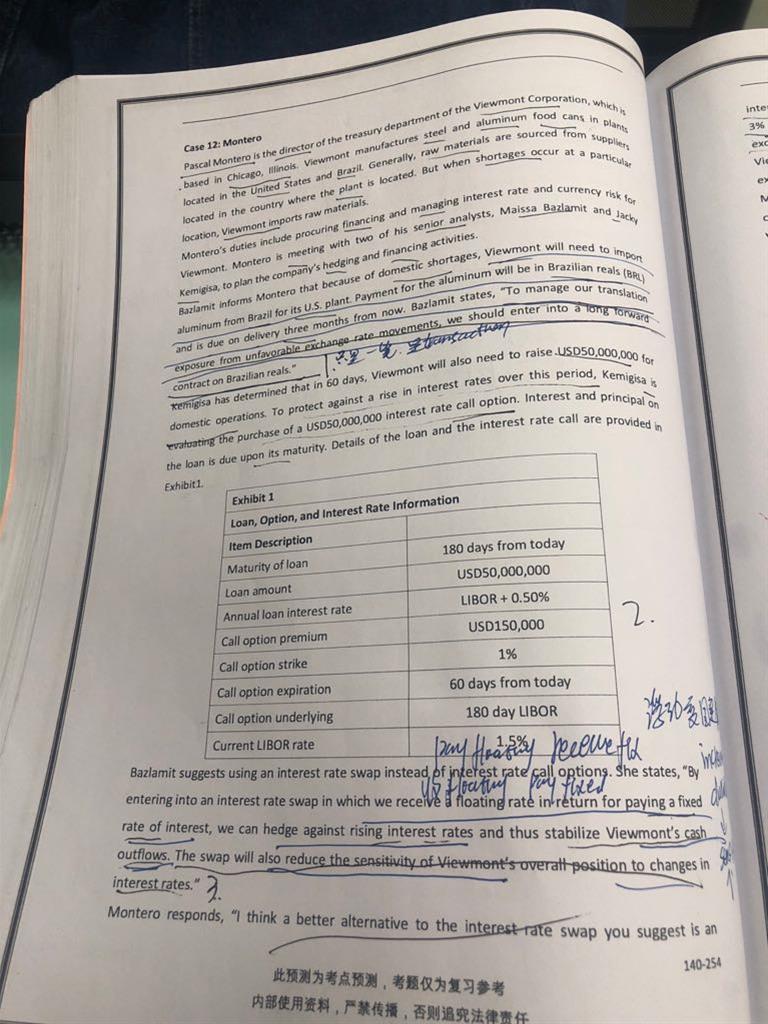 Case 12: Montero
Pascal Montero is the director of the treasury department of the Viewmont Corporation, which is
based in Chicago, Illinois. Viewmont manufactures steel and aluminum food cans in plants
located in the United States and Brazil. Generally, raw materials are sourced from suppliers
located in the country where the plant is located. But when shortages occur at a particular
location, Viewmont imports raw materials.
Montero's duties include procuring financing and managing interest rate and currency risk for
Viewmont. Montero is meeting with two of his senior analysts, Maissa Bazlamit and Jacky
Kemigisa, to plan the company's hedging and financing activities.
Bazlamit informs Montero that because of domestic shortages, Viewmont will need to import
aluminum from Brazil for its U.S. plant. Payment for the aluminum will be in Brazilian reals (BRL)
and is due on delivery three months from now. Bazlamit states, "To manage our translation
exposure from unfavorable exchange rate movements, we should enter into a long forward
contract on Brazilian reals."
只是一笔. 是transaction
Kemigisa has determined that in 60 days, Viewmont will also need to raise USD50,000,000 for
domestic operations. To protect against a rise in interest rates over this period, Kemigisa is
evaluating the purchase of a USD50,000,000 interest rate call option. Interest and principal on
the loan is due upon its maturity. Details of the loan and the interest rate call are provided in
Exhibit1.
Exhibit 1
Loan, Option, and Interest Rate Information
Item Description
Maturity of loan 180 days from today
Loan amount USD50,000,000
Annual loan interest rate LIBOR + 0.50%
Call option premium USD150,000
Call option strike 1%
Call option expiration 60 days from today
Call option underlying 180 day LIBOR
Current LIBOR rate 1.5%
2.
pay floating receive fix
floating pay fixed
Bazlamit suggests using an interest rate swap instead of interest rate call options. She states, "By
entering into an interest rate swap in which we receive a floating rate in return for paying a fixed
rate of interest, we can hedge against rising interest rates and thus stabilize Viewmont's cash
outflows. The swap will also reduce the sensitivity of Viewmont's overall position to changes in
interest rates."
3.
Montero responds, "I think a better alternative to the interest rate swap you suggest is an
140-254
此预测为考点预测，考题仅为复习参考
内部使用资料，严禁传播，否则追究法律责任
inte
3%
exc
Vie
ex
M